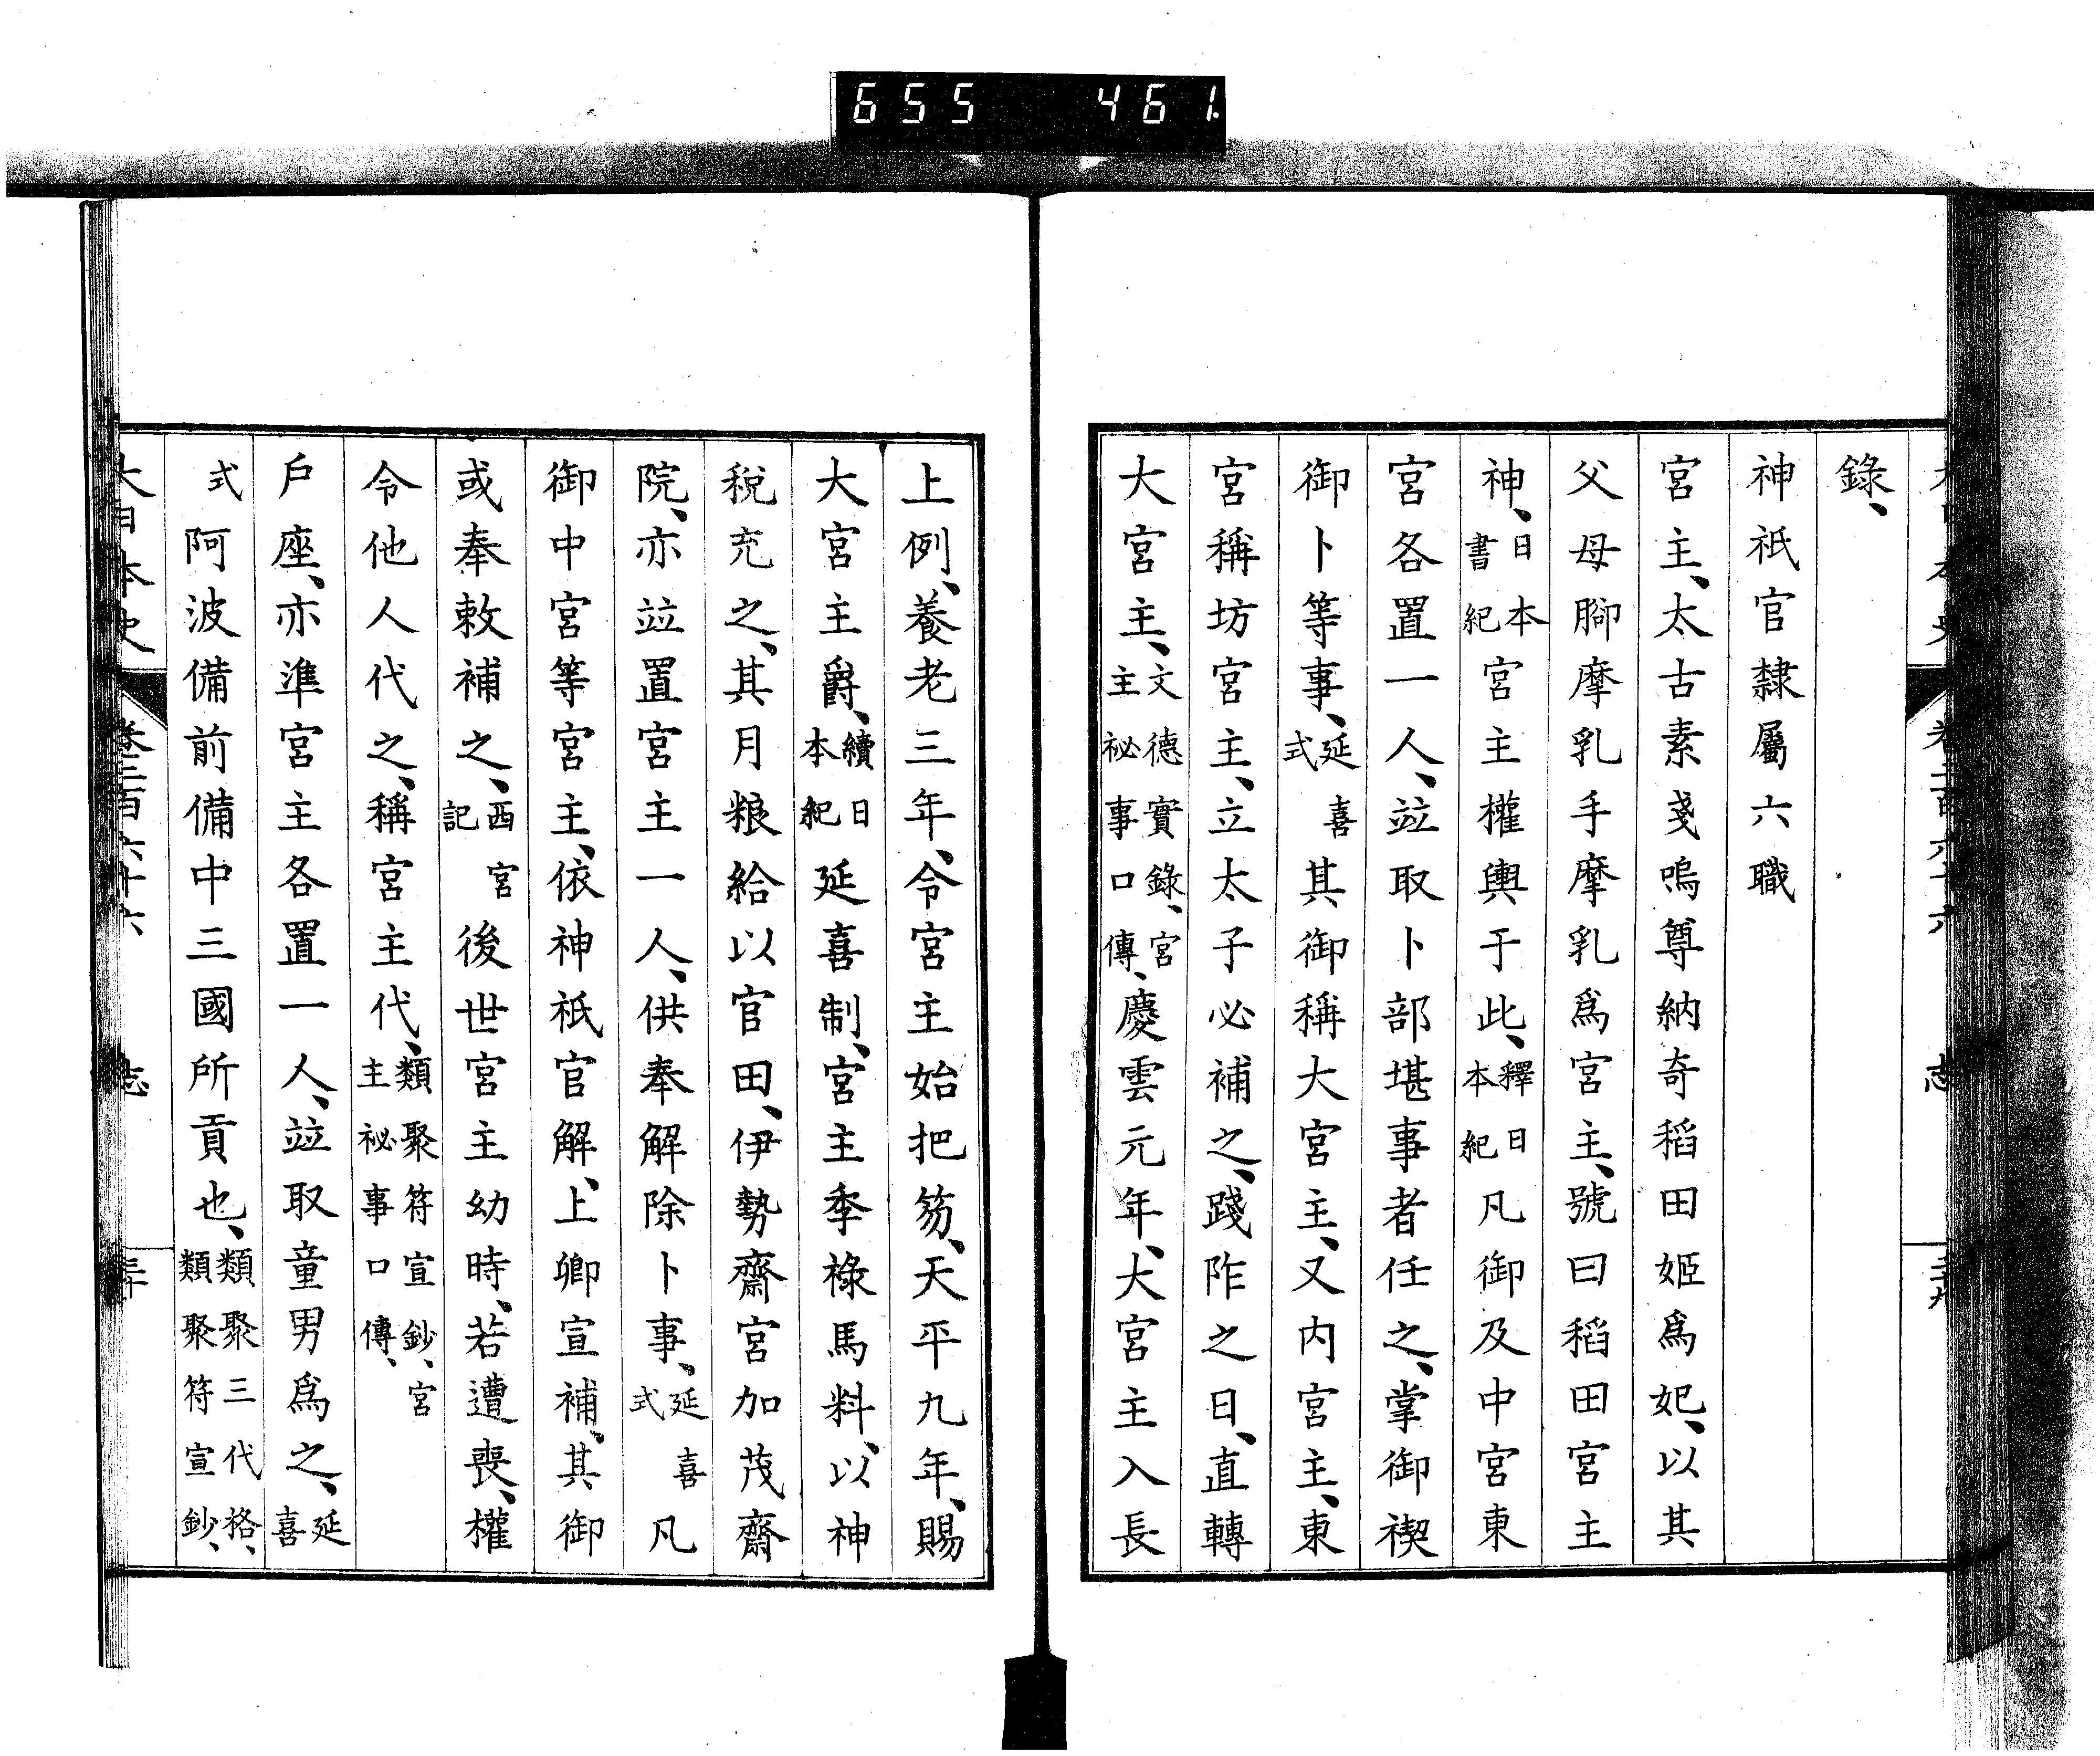 655 461.
錄、
神祇官隸屬六職
宮主、太古素戔嗚尊納奇稻田姬爲妃、以其
父母腳摩乳手摩乳爲宮主、號曰稻田宮主
神、日本書紀宮主權輿于此、釋日本紀凡御及中宮東
宮各置一人、竝取卜部堪事者任之、掌御禊
御卜等事、延喜式其御稱大宮主、又内宮主、東
宮稱坊宮主、立太子必補之、踐阼之日、直轉
大宮主、文德實錄、宮主祕事口傳、慶雲元年、大宮主入長
上例、養老三年、令宮主始把笏、天平九年、賜
大宮主爵、續日本紀延喜制、宮主季祿馬料、以神
稅充之、其月粮給以官田、伊勢齋宮加茂齋
院、亦竝置宮主一人、供奉解除卜事、延喜式凡
御中宮等宮主、依神祇官解、上卿宣補、其御
或奉敕補之、西宮記後世宮主幼時、若遭喪、權
令他人代之、稱宮主代、類聚符宣鈔、宮主祕事口傳、
戶座、亦準宮主各置一人、竝取童男爲之、延喜
式阿波備前備中三國所貢也、類聚三代格、類聚符宣鈔、
大日本史 卷三百六十六 志